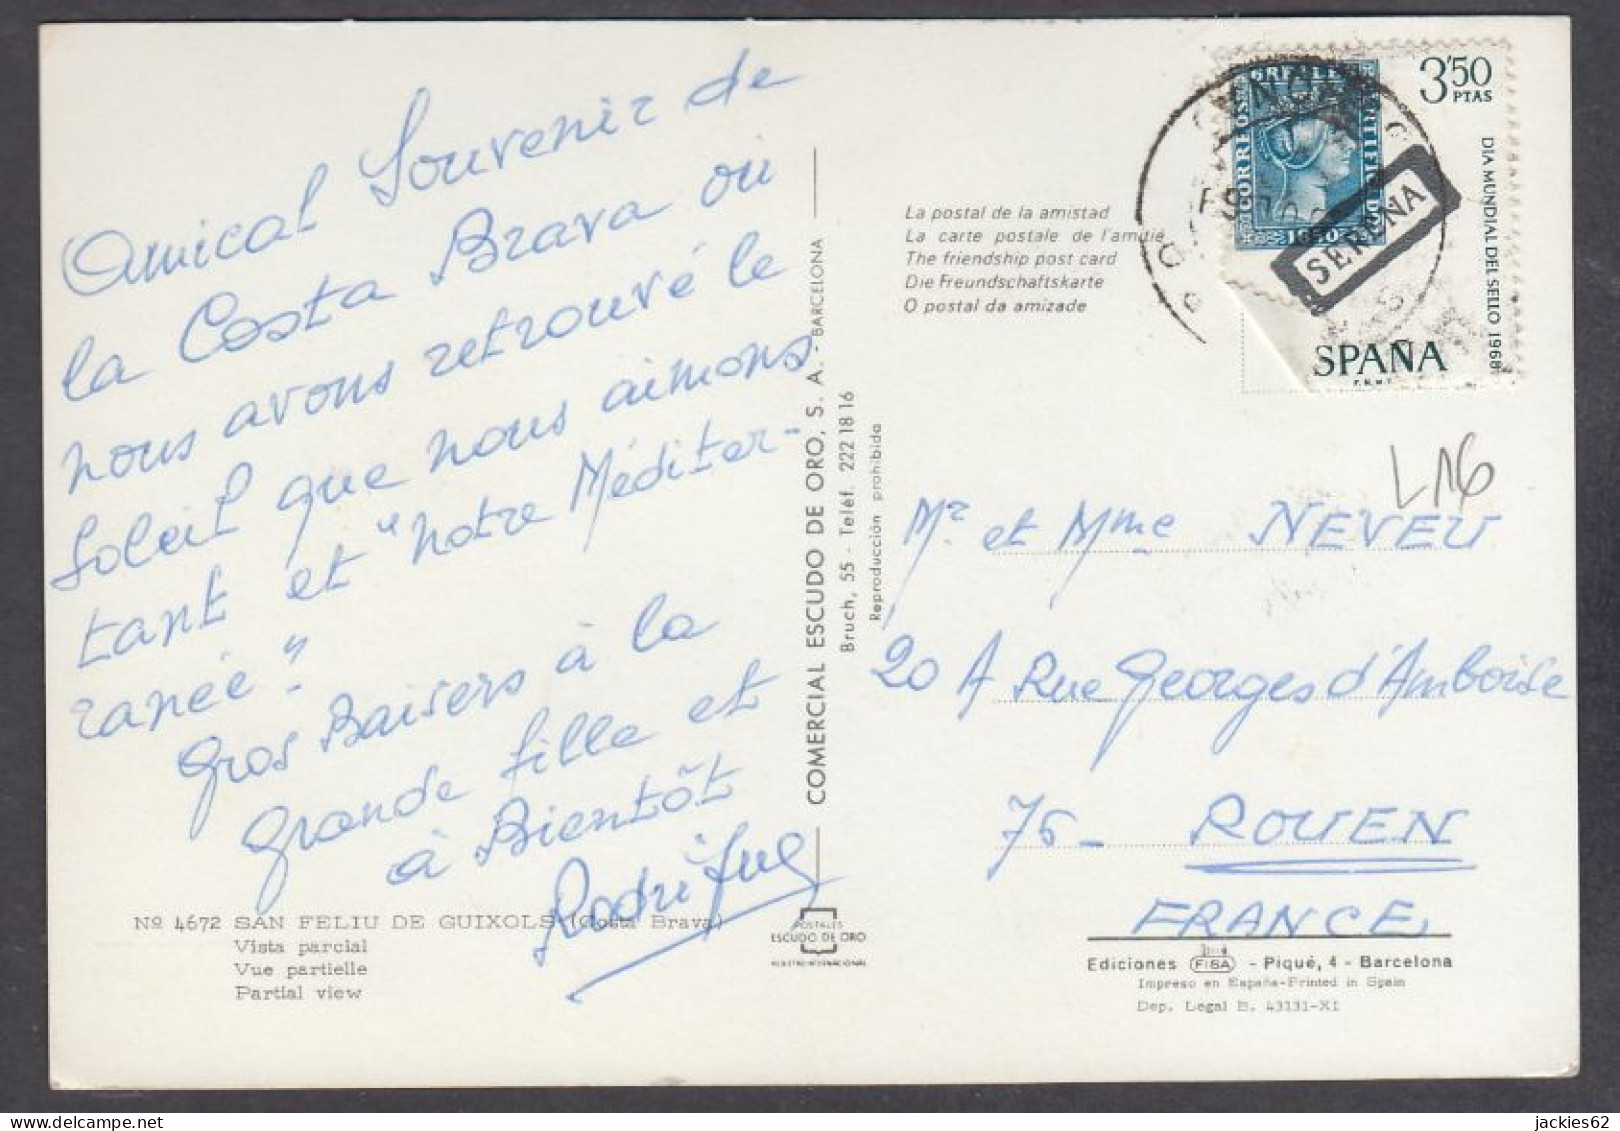 Amical Souvenir de
la Costa Brava où
nous avons retrouvé le
Soleil que nous aimons
tant et "notre Méditer-
ranée".
Gros Baisers à la
grande fille et
à Bientôt
COMERCIAL ESCUDO DE ORO, S. A. - BARCELONA
Bruch, 55 - Teléf. 222 18 16
Reproducción prohibida
Nº 4672 SAN FELIU DE GUIXOLS (Costa Brava)
Vista parcial
Vue partielle
Partial view
POSTALES
ESCUDO DE ORO
REGISTRO INTERNACIONAL
La postal de la amistad
La carte postale de l'amitié
The friendship post card
Die Freundschaftskarte
O postal da amizade
3'50
PTAS
DIA MUNDIAL DEL SELLO 1968
CORREOS
1850
SERENA
ESPAÑA
L16
Mr et Mme NEVEU
20 A Rue Georges d'Amboise
76 - ROUEN
FRANCE
Ediciones FISA - Piqué, 4 - Barcelona
Impreso en España-Printed in Spain
Dep. Legal B. 43131-XI
jackies62